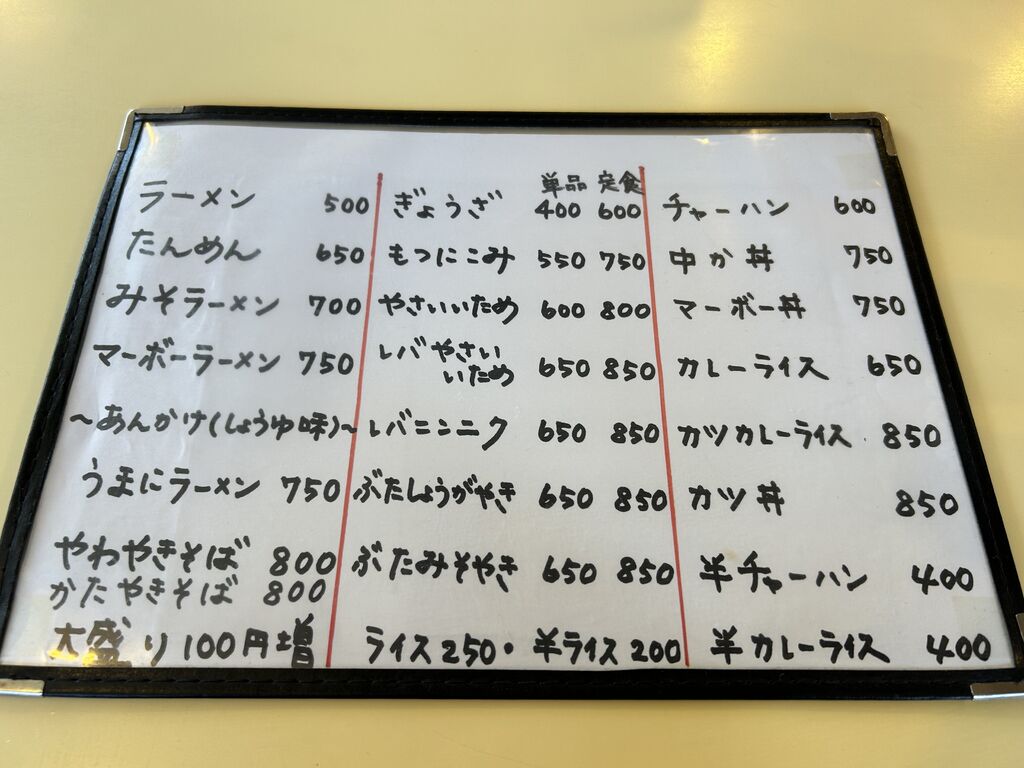 ラーメン 500
たんめん 650
みそラーメン 700
マーボーラーメン 750
～あんかけ(しょうゆ味)～
うまにラーメン 750
やわやきそば 800
かたやきそば 800
大盛り100円増
単品 定食
ぎょうざ 400 600
もつにこみ 550 750
やさいいため 600 800
レバやさい
いため 650 850
レバニンニク 650 850
ぶたしょうがやき 650 850
ぶたみそやき 650 850
ライス250・半ライス200
チャーハン 600
中か丼 750
マーボー丼 750
カレーライス 650
カツカレーライス 850
カツ丼 850
半チャーハン 400
半カレーライス 400